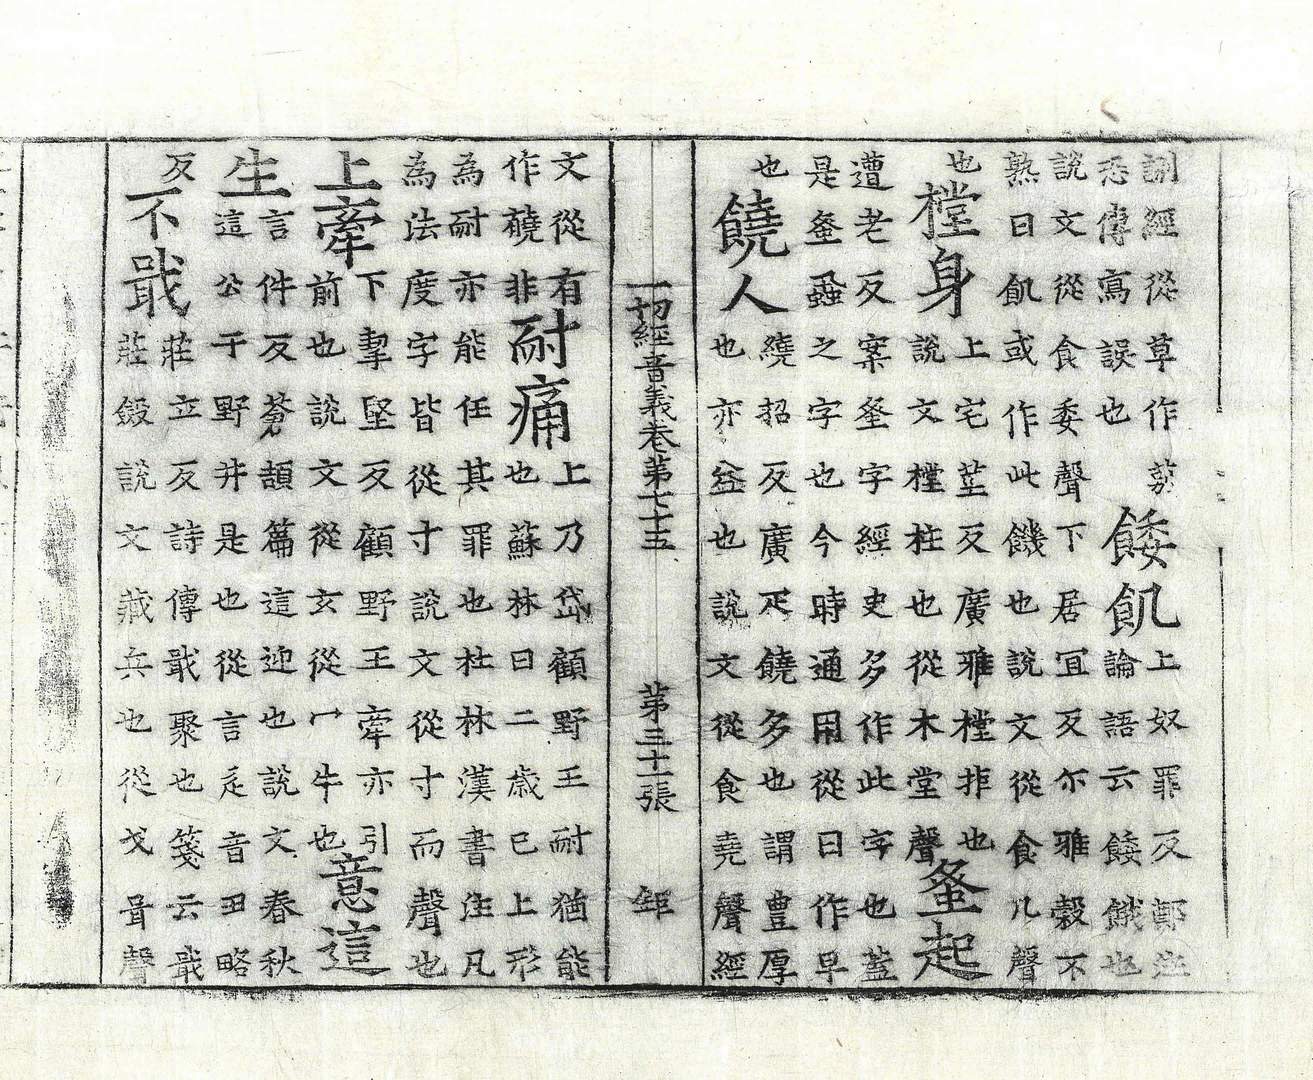 䛆經從草作䔣
悉傳寫誤也
餧飢
上奴罪反鄭注
論語云餧餓也
說文從食委聲下居冝反尒雅穀不
熟曰飢或作此饑也說文從食几聲
也
樘身
上宅莖反廣雅樘排也
說文樘柱也從木堂聲
蚤起
遭老反案蚤字經史多作此字也蓋
是蚤蝨之字也今時通用從曰作早
也
饒人
繞招反廣疋饒多也謂豊厚
也亦益也說文從食堯聲經
一切經音義卷第七十五 第三十一張 鉅
文從有
作蕘非
耐痛
上乃岱顧野王耐猶能
也蘇林曰二歳已上形
為耐亦能任其罪也杜林漢書注凡
為法度字皆從寸說文從寸而聲也
上牽
下挈堅反顧野王牽亦引
前也說文從玄從冖牛也
意這
生
言件反蒼頡篇這迎也說文春秋
這公于野井是也從言辵音丑略
反
不戢
莊立反詩傳戢聚也箋云戢
莊鍛說文藏兵也從戈咠聲